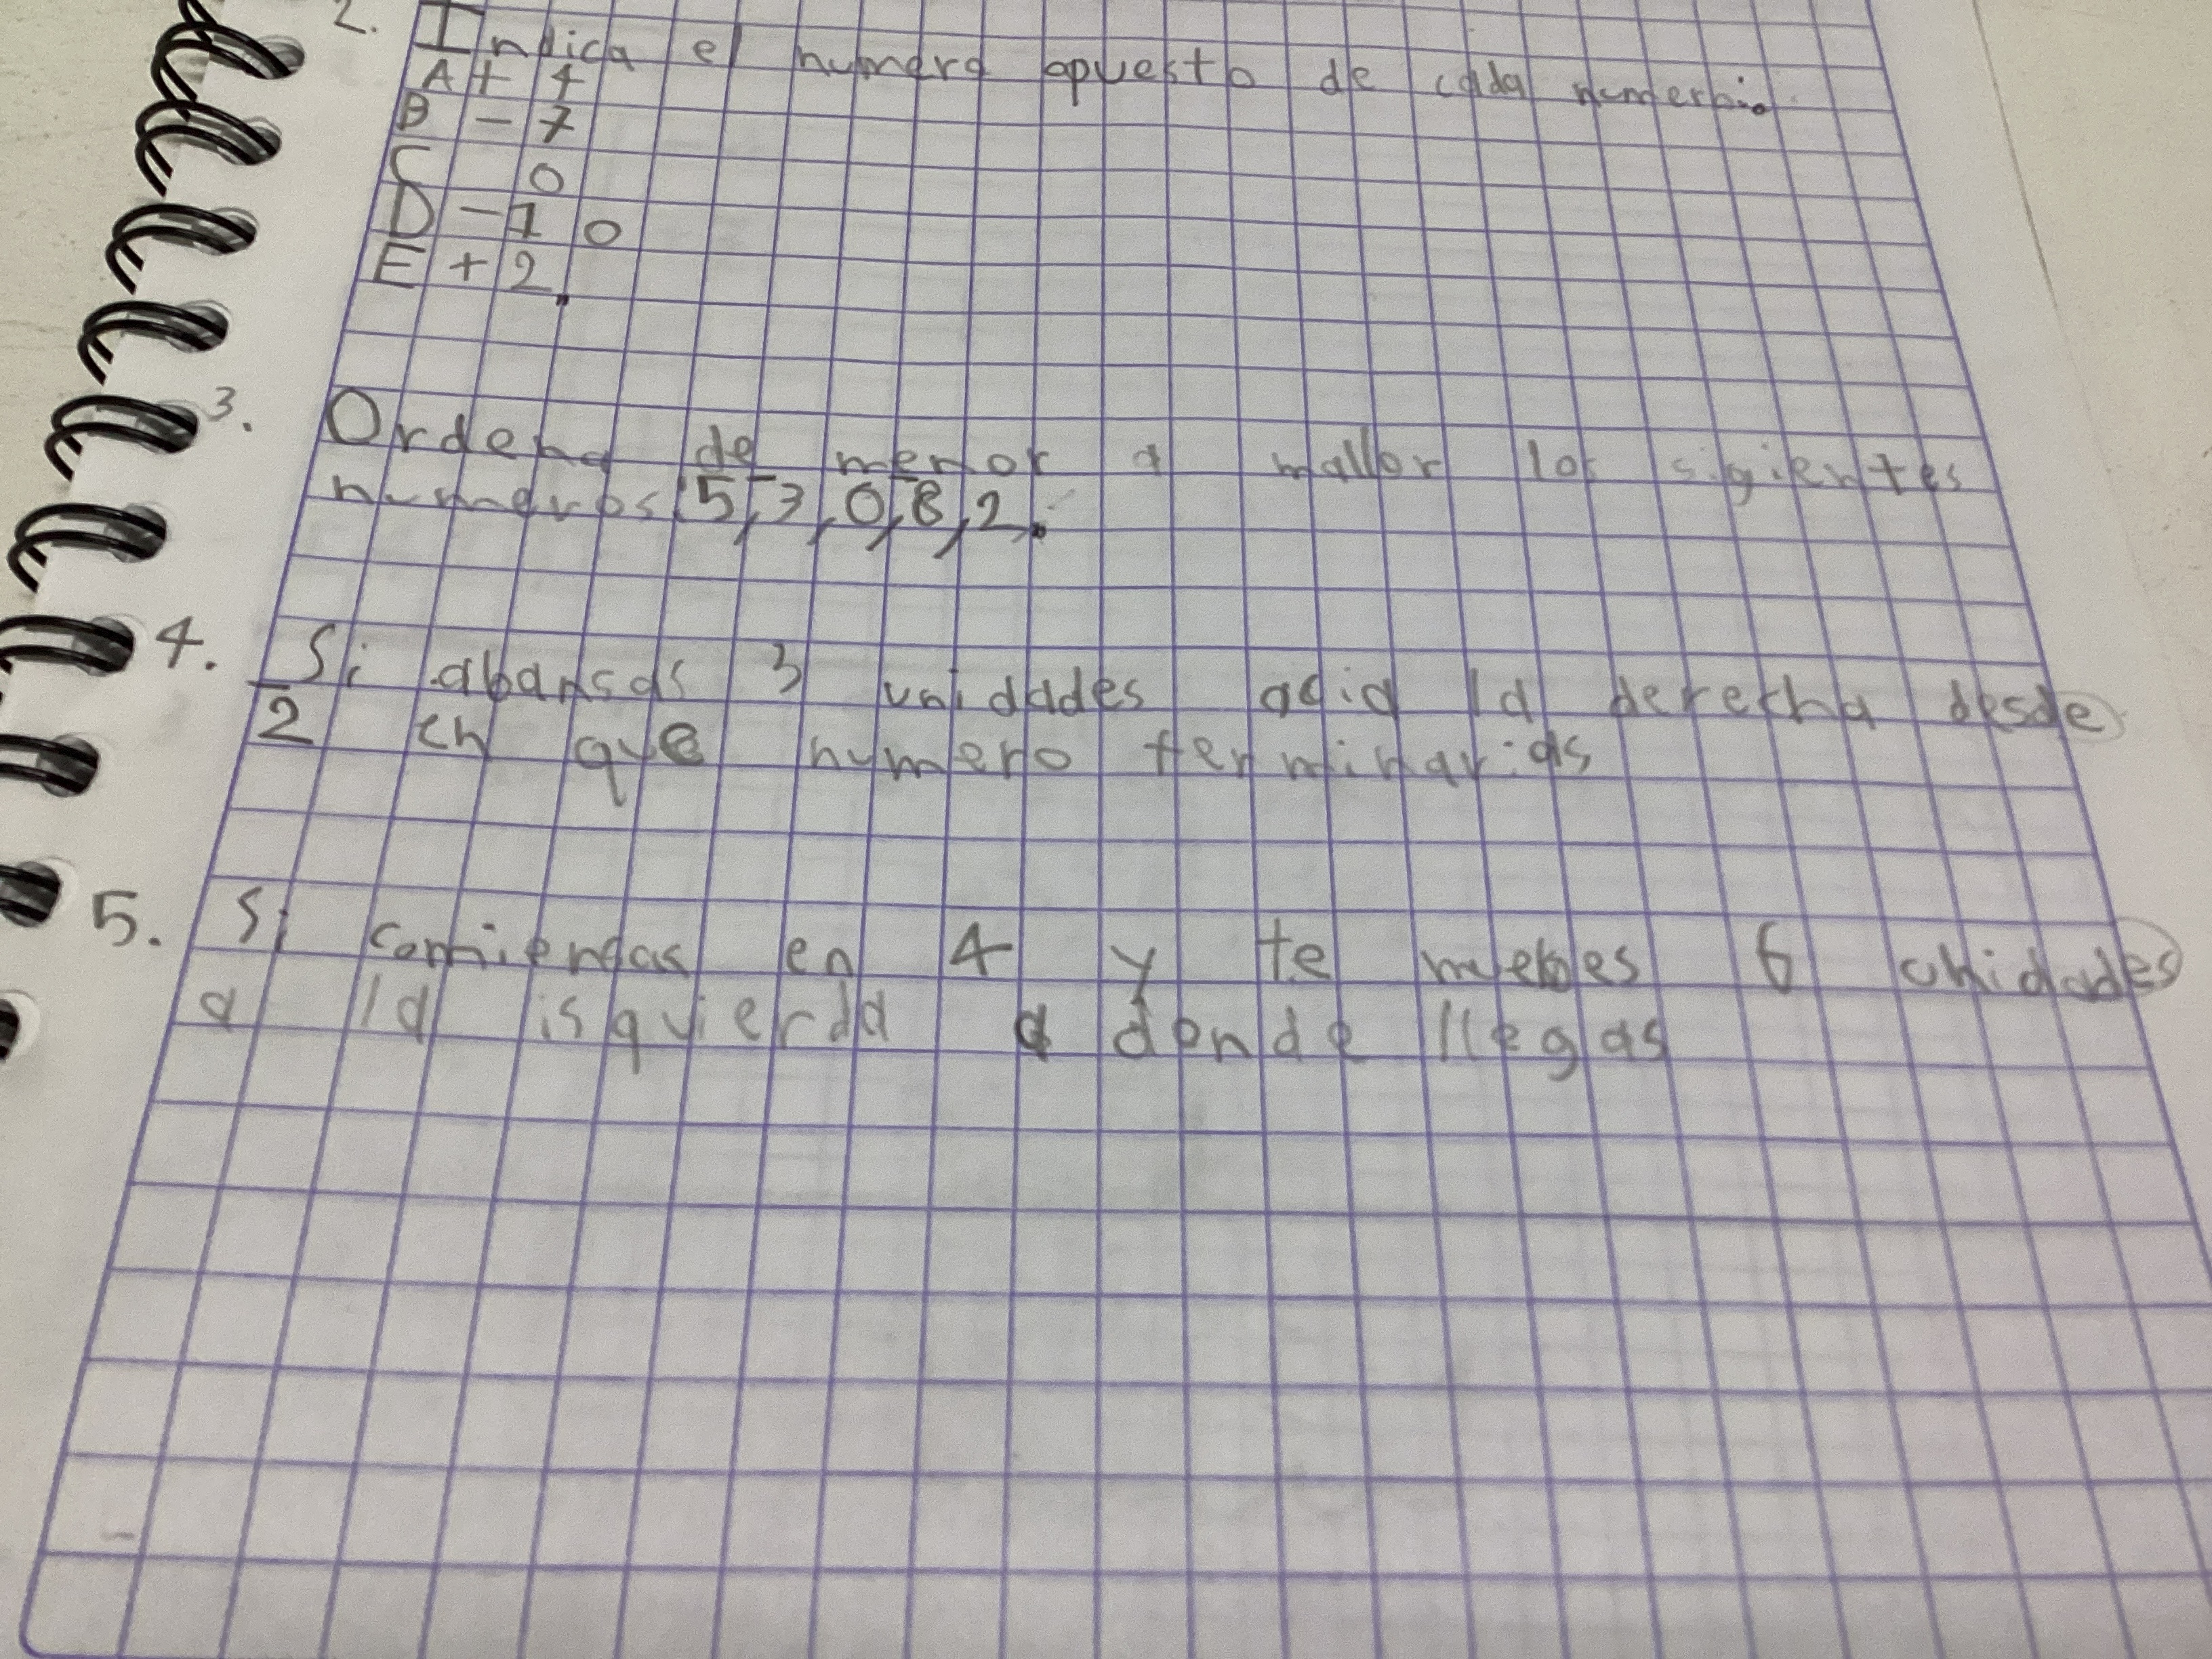 2. Indica el numero opuesto de cada numero.
A + 4
B - 7
C 0
D - 10
E + 2.
3. Ordena de menor a mallor los sigientes
numeros: 5, -3, 0, -8, 2.
4. Si abansas 3 unidades acia la derecha desde
-2 en que numero terminarias
5. Si comiensas en 4 y te muebes 6 unidades
a la isquierda a donde llegas